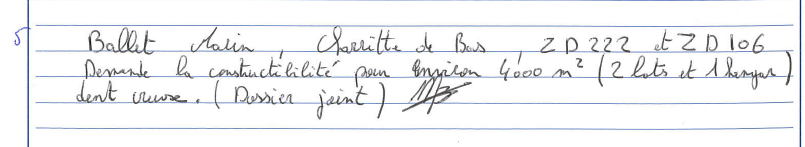 5 Ballet Marin, Charritte de Bas, ZD 222 et ZD 106
Demande la constructibilité pour environ 4000 m² (2 lots et 1 hangar)
dent creuse. (Dossier joint)